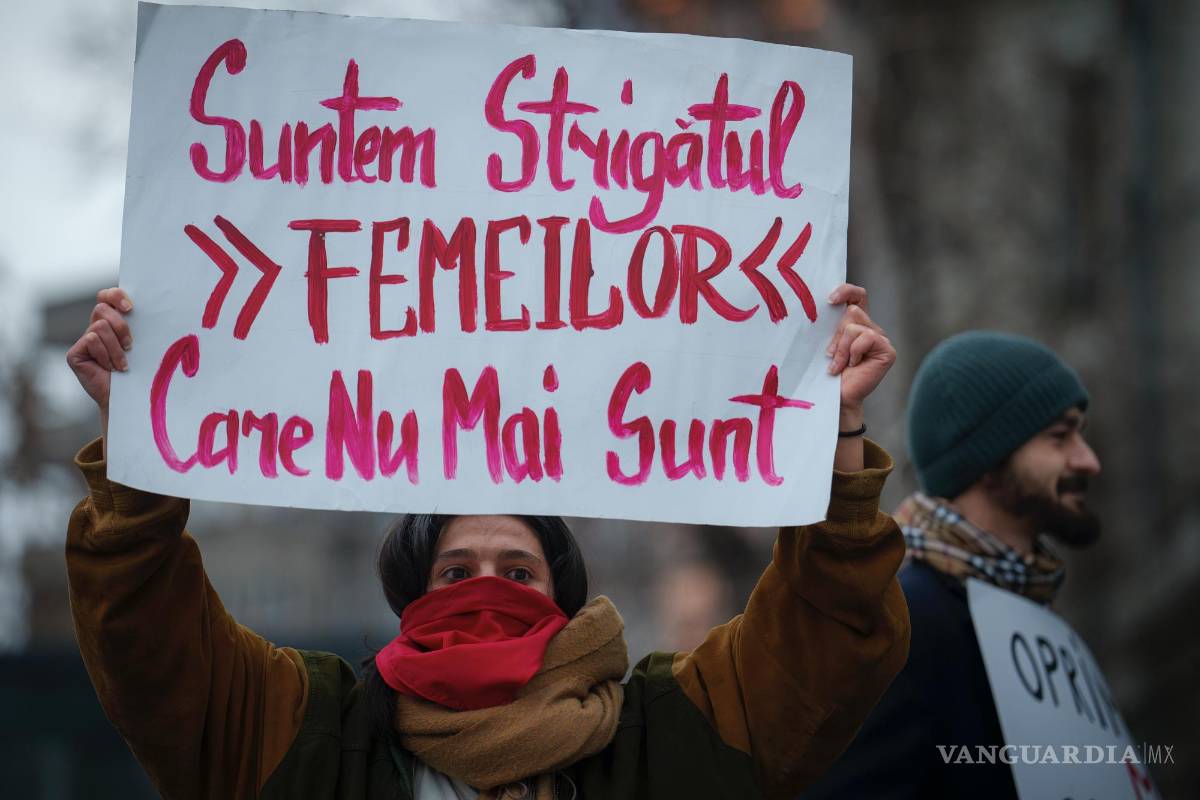 Suntem Strigătul
>> FEMEILOR <<
Care Nu Mai Sunt
VANGUARDIA|MX